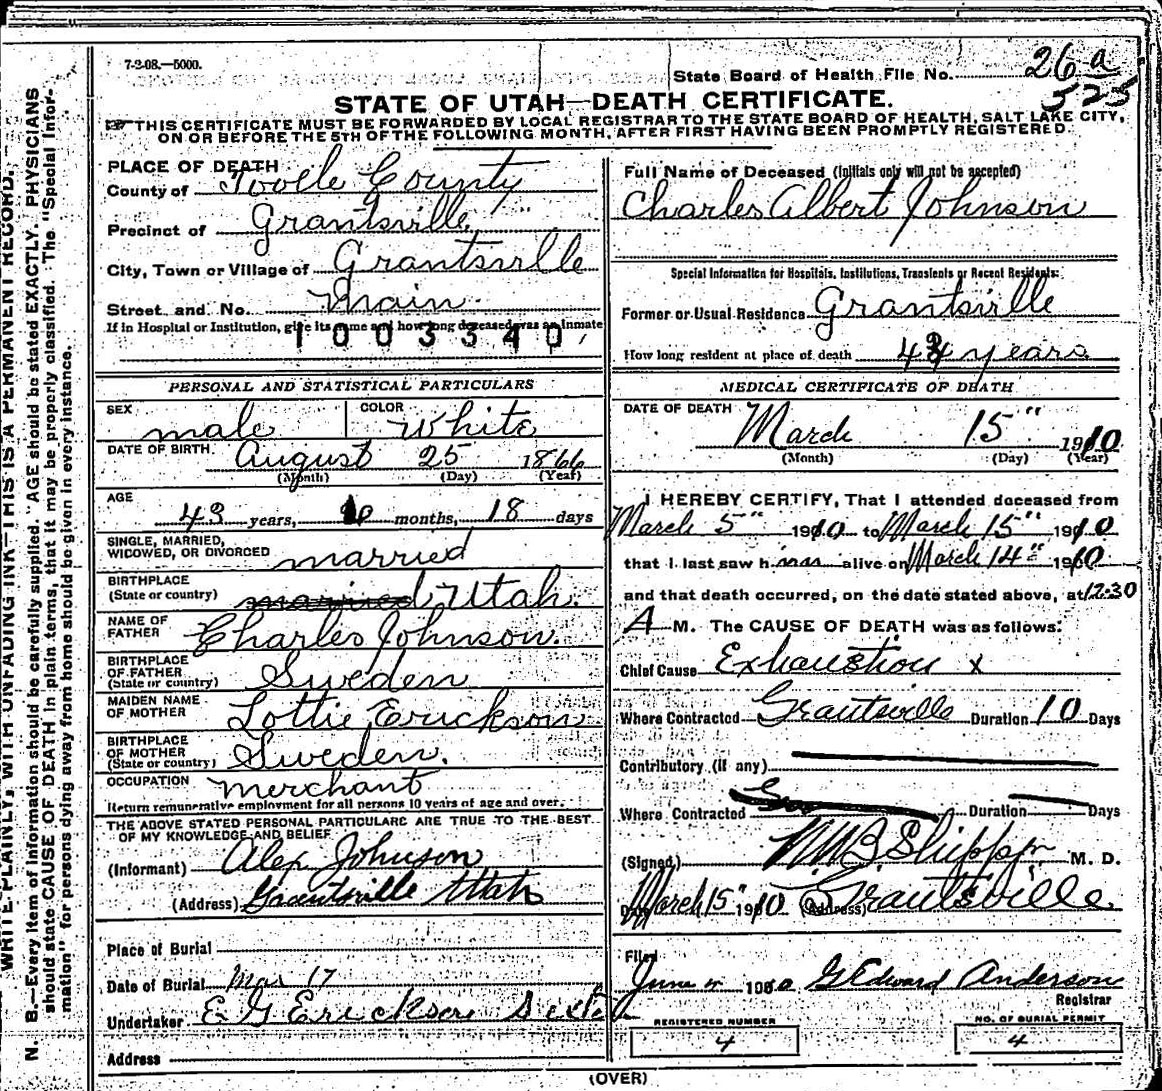 7-2-08.—5000.
State Board of Health File No. 26 a
525
STATE OF UTAH—DEATH CERTIFICATE.
THIS CERTIFICATE MUST BE FORWARDED BY LOCAL REGISTRAR TO THE STATE BOARD OF HEALTH, SALT LAKE CITY,
ON OR BEFORE THE 5TH OF THE FOLLOWING MONTH, AFTER FIRST HAVING BEEN PROMPTLY REGISTERED.
WRITE PLAINLY, WITH UNFADING INK—THIS IS A PERMANENT RECORD.
N. B.—Every item of information should be carefully supplied. AGE should be stated EXACTLY. PHYSICIANS
should state CAUSE OF DEATH in plain terms, that it may be properly classified. The "Special Infor-
mation" for persons dying away from home should be given in every instance.
PLACE OF DEATH
County of Tooele County
Precinct of Grantsville
City, Town or Village of Grantsville
Street and No. Main
If in Hospital or Institution, give its name and how long deceased was an inmate
1003340
PERSONAL AND STATISTICAL PARTICULARS
SEX male COLOR White
DATE OF BIRTH August 25 1866
(Month) (Day) (Year)
AGE
43 years, months, 18 days
SINGLE, MARRIED,
WIDOWED, OR DIVORCED married
BIRTHPLACE
(State or country) married Utah.
NAME OF
FATHER Charles Johnson.
BIRTHPLACE
OF FATHER
(State or country) Sweden
MAIDEN NAME
OF MOTHER Lottie Erickson
BIRTHPLACE
OF MOTHER
(State or country) Sweden.
OCCUPATION merchant
Return remunerative employment for all persons 10 years of age and over.
THE ABOVE STATED PERSONAL PARTICULARS ARE TRUE TO THE BEST
OF MY KNOWLEDGE AND BELIEF
(Informant) Alex Johnson
(Address) Grantsville Utah
Place of Burial
Date of Burial Mar 17
Undertaker E G Erickson Sexton
Address
Full Name of Deceased (Initials only will not be accepted)
Charles Albert Johnson
Special Information for Hospitals, Institutions, Transients or Recent Residents:
Former or Usual Residence Grantsville
How long resident at place of death years
MEDICAL CERTIFICATE OF DEATH
DATE OF DEATH
March 15" 1910
(Month) (Day) (Year)
I HEREBY CERTIFY, That I attended deceased from
March 5" 1910 to March 15" 1910
that I last saw him alive on March 14" 1910
and that death occurred, on the date stated above, at 12:30
A M. The CAUSE OF DEATH was as follows:
Chief Cause Exhaustion x
Where Contracted Grantsville Duration 10 Days
Contributory (if any)
Where Contracted Duration Days
(Signed) M. D.
Date March 15" 1910 (Address) Grantsville
Filed
June 190 G Edward Anderson
Registrar
REGISTERED NUMBER
4
NO. OF BURIAL PERMIT
4
(OVER)